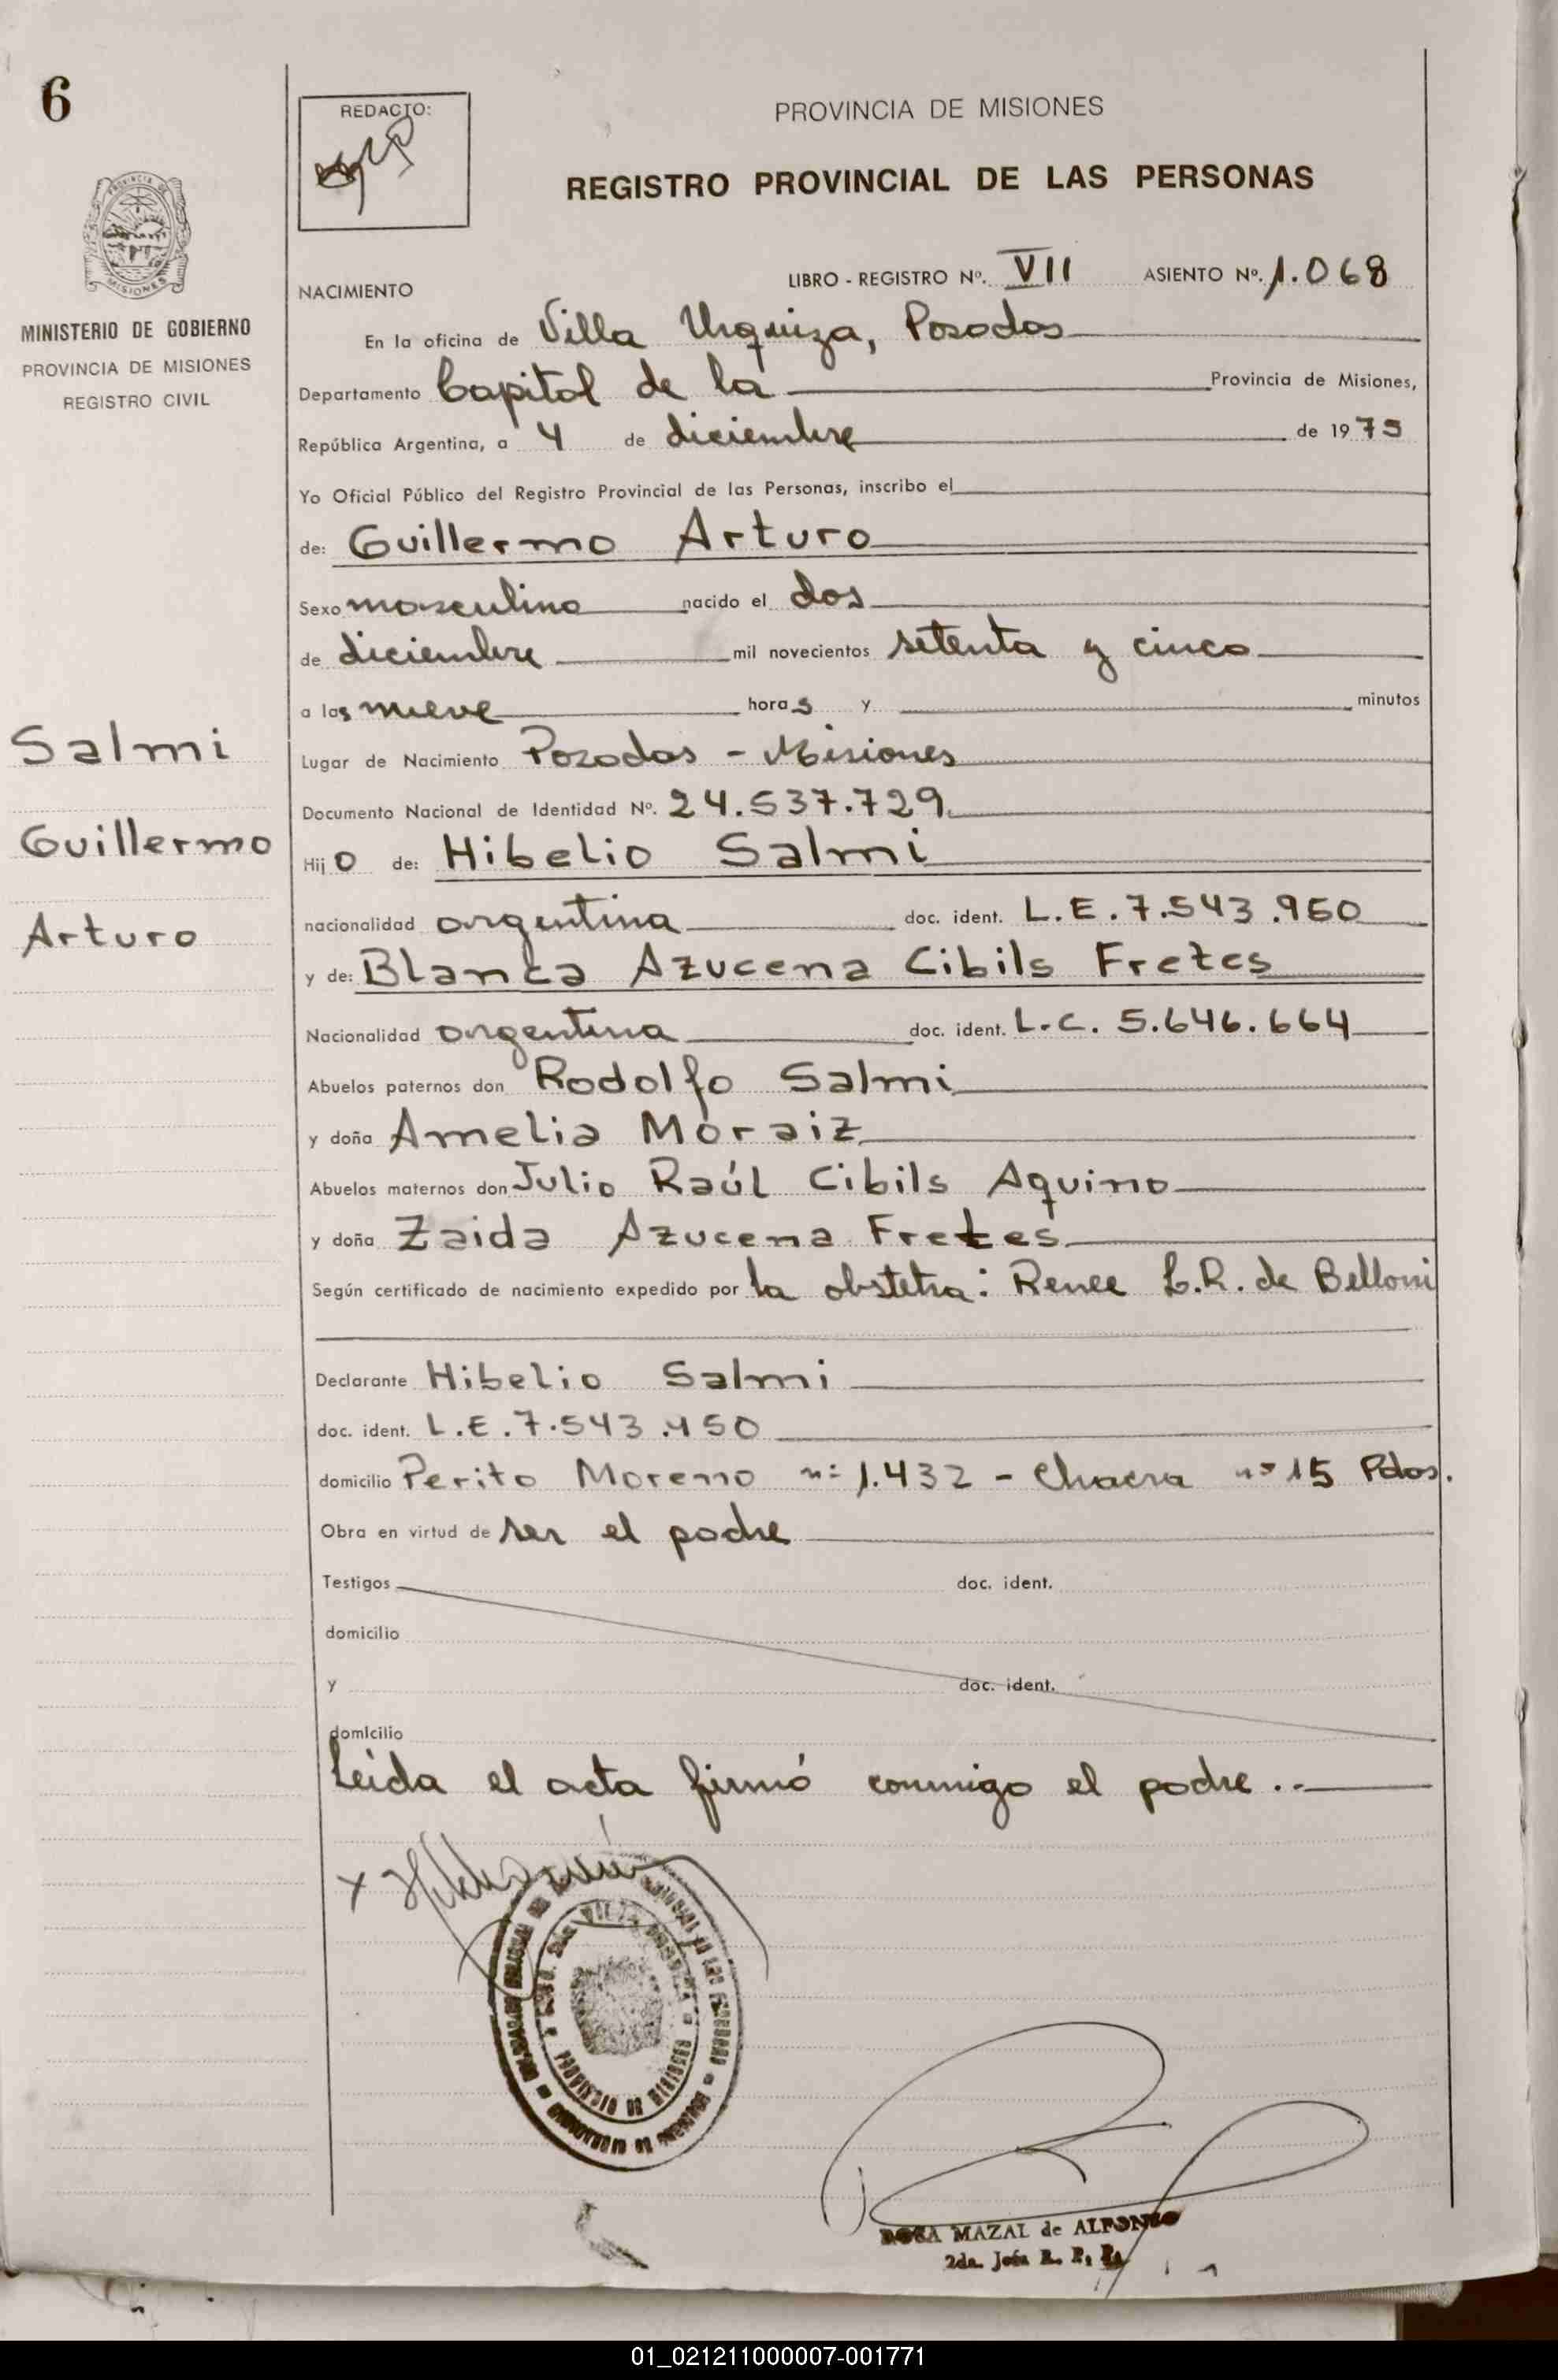 6
REDACTO:
PROVINCIA DE MISIONES
REGISTRO PROVINCIAL DE LAS PERSONAS
PROVINCIA DE
MISIONES
MINISTERIO DE GOBIERNO
PROVINCIA DE MISIONES
REGISTRO CIVIL
NACIMIENTO LIBRO - REGISTRO Nº. VII ASIENTO Nº. 1.068
En la oficina de Villa Urquiza, Posadas
Departamento Capital de la Provincia de Misiones,
República Argentina, a 4 de diciembre de 1975
Yo Oficial Público del Registro Provincial de las Personas, inscribo el
de: Guillermo Arturo
Sexo masculino nacido el dos
de diciembre mil novecientos setenta y cinco
a las nueve horas y minutos
Lugar de Nacimiento Posadas - Misiones
Documento Nacional de Identidad Nº. 24.537.729
Hijo de: Hibelio Salmi
nacionalidad argentina doc. ident. L.E. 7.543.950
y de: Blanca Azucena Cibils Fretes
Nacionalidad argentina doc. ident. L.C. 5.646.664
Abuelos paternos don Rodolfo Salmi
y doña Amelia Moraiz
Abuelos maternos don Julio Raúl Cibils Aquino
y doña Zaida Azucena Fretes
Según certificado de nacimiento expedido por la obstetra: Renee L.R. de Belloni
Declarante Hibelio Salmi
doc. ident. L.E. 7.543.950
domicilio Perito Moreno nº 1.432 - Chacra nº 15 Pdas.
Obra en virtud de ser el padre
Testigos doc. ident.
domicilio
y doc. ident.
domicilio
Leída el acta firmó conmigo el padre..
Salmi
Guillermo
Arturo
x
PROVINCIA DE MISIONES
ROSA MAZAL de ALFONSO
2da. Jefa R. P. P.
01_021211000007-001771